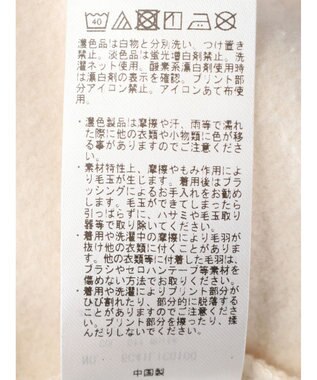 40
濃色品は白物と分別洗い、つけ置き
禁止。淡色品は蛍光増白剤禁止。洗
濯ネット使用。酸素系漂白剤使用時
は漂白剤の表示を確認。プリント部
分アイロン禁止。アイロンあて布使
用。
・濃色製品は摩擦や汗、雨等で濡れ
た際に他の衣類や小物類に色が移
る事がありますのでご注意くださ
い。
・素材特性上、摩擦やもみ作用によ
り毛玉が生じます。着用後はブラ
ッシングによるお手入れをお勧め
します。毛玉ができてしまったら
引っぱらずに、ハサミや毛玉取り
器等で取り除いてください。
・着用や洗濯中の摩擦により毛羽が
抜け他の衣類に付くことがありま
す。他の衣類等に付着した毛羽は、
ブラシやセロハンテープ等素材を
傷めない方法でお取りください。
・着用や洗濯によりプリント部分が
ひび割れたり、部分的に脱落する
ことがありますのでご注意くださ
い。プリント部分を擦ったり、揉
んだりしないでください。
中国製